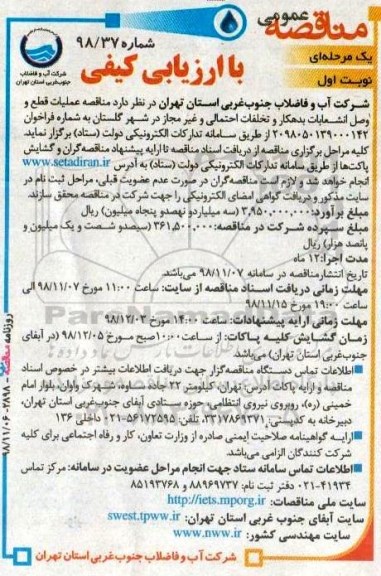 مناقصه عمومی
یک مرحله‌ای
نوبت اول
شماره ۹۸/۳۷
با ارزیابی کیفی
شرکت آب و فاضلاب
جنوب‌غربی استان تهران
شرکت آب و فاضلاب جنوب‌غربی استان تهران در نظر دارد مناقصه عملیات قطع و
وصل انشعابات بدهکار و تخلفات احتمالی و غیر مجاز در شهر گلستان به شماره فراخوان
۲۰۹۸۰۵۱۳۹۰۰۰۱۴۲ از طریق سامانه تدارکات الکترونیکی دولت (ستاد) برگزار نماید.
کلیه مراحل برگزاری مناقصه از دریافت اسناد مناقصه تا ارایه پیشنهاد مناقصه‌گران و گشایش
پاکت‌ها از طریق سامانه تدارکات الکترونیکی دولت (ستاد) به آدرس www.setadiran.ir
انجام خواهد شد و لازم است مناقصه‌گران در صورت عدم عضویت قبلی، مراحل ثبت نام در
سایت مذکور و دریافت گواهی امضای الکترونیکی را جهت شرکت در مناقصه محقق سازند.
مبلغ برآورد: ۳,۹۵۰,۰۰۰,۰۰۰ (سه میلیارد و نهصدو پنجاه میلیون) ریال
مبلغ سپرده شرکت در مناقصه: ۳۶۱,۵۰۰,۰۰۰ (سیصدو شصت و یک میلیون و
پانصد هزار) ریال
مدت اجرا: ۱۲ ماه
تاریخ انتشار مناقصه در سامانه ۹۸/۱۱/۰۷ می‌باشد.
مهلت زمانی دریافت اسناد مناقصه از سایت: ساعت ۱۱:۰۰ مورخ ۹۸/۱۱/۰۷ الی
ساعت ۱۹:۰۰ مورخ ۹۸/۱۱/۱۵
مهلت زمانی ارایه پیشنهادات: ساعت ۱۴:۰۰ مورخ ۹۸/۱۲/۰۳
زمان گشایش کلیه پاکات: از ساعت ۱۰:۰۰ صبح مورخ ۹۸/۱۲/۰۵ (در آبفای
جنوب‌غربی استان تهران) می‌باشد.
اطلاعات تماس دستگاه مناقصه‌گزار جهت دریافت اطلاعات بیشتر در خصوص اسناد
مناقصه و ارایه پاکات: آدرس تهران، کیلومتر ۲۲ جاده ساوه، شهرک واوان، بلوار امام
خمینی (ره)، روبروی نیروی انتظامی، حوزه ستادی آبفای جنوب‌غربی استان تهران،
دبیرخانه به کدپستی: ۳۳۱۷۸۶۹۳۷۱، تلفن: ۵۶۱۷۲۵۹۵-۰۲۱ داخلی ۱۳۶
ارایه گواهینامه صلاحیت ایمنی صادره از وزارت تعاون، کار و رفاه اجتماعی برای کلیه
شرکت کنندگان الزامی می‌باشد.
اطلاعات تماس سامانه ستاد جهت انجام مراحل عضویت در سامانه: مرکز تماس
۰۲۱-۴۱۹۳۴ دفتر ثبت نام: ۸۸۹۶۹۷۳۷ و ۸۵۱۹۳۷۶۸
سایت ملی مناقصات: http://iets.mporg.ir
سایت آبفای جنوب غربی استان تهران: swest.tpww.ir
سایت مهندسی کشور: www.nww.ir
شرکت آب و فاضلاب جنوب‌غربی استان تهران
روزنامه مناقصه - ۲۸۹۸ - ۹۸/۱۱/۰۶